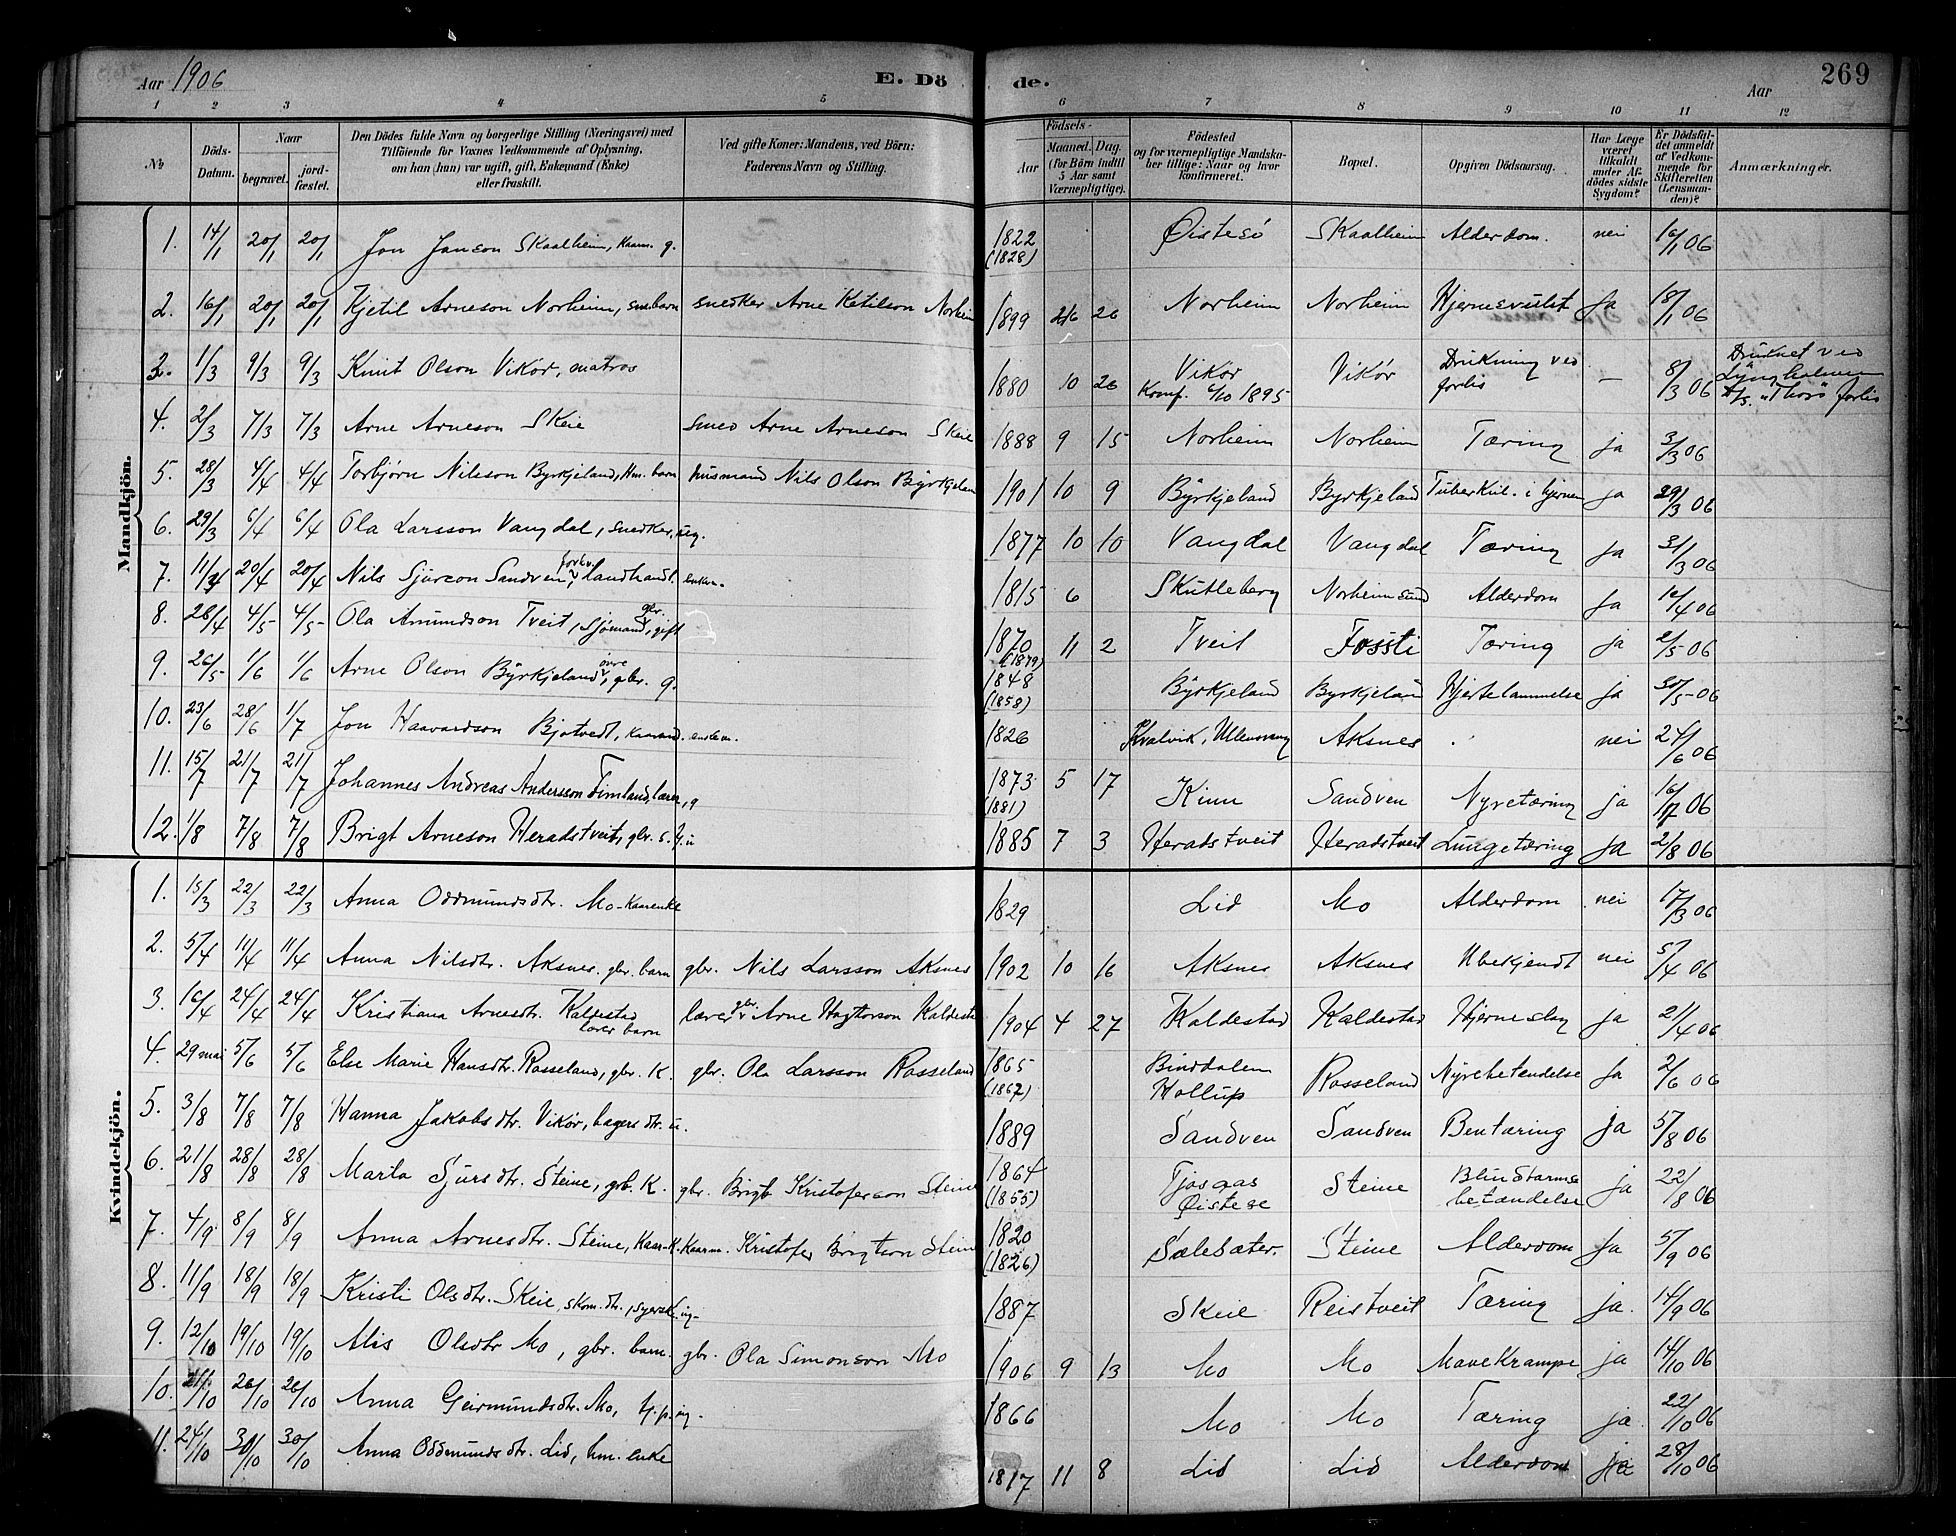 Aar 1906 E. Dö de. Aar 269
1 2 3 4 5 6 7 8 9 10 11 12
No Döds-Datum. Naar begravet. jord-fæstet. Den Dödes fulde Navn og borgerlige Stilling (Næringsvei) med Tilföiende for Voxnes Vedkommende af Oplysning, om han (hun) var ugift, gift, Enkemand (Enke) eller fraskilt. Ved gifte Koner: Mandens, ved Börn: Faderens Navn og Stilling. Födsels- Aar Maaned. Dag. (for Börn indtil 5 Aar samt Værnepligtige). Födested og for værnepligtige Mandskaber tillige: Naar og hvor konfirmeret. Bopæl. Opgiven Dödsaarsag. Har Læge været tilkaldt under Afdödes sidste Sygdom? Er Dödsfaldet anmeldt af Vedkommende for Skifteretten (Lensmanden)? Anmærkninger.
Mandkjön.
1. 14/1 20/1 20/1 Jon Janson Skaalheim, Kaarm. g. 1822 (1828) Øistesö Skaalheim Alderdom. nei 16/1 06
2. 16/1 20/1 20/1 Kjetil Arneson Norheim, sn. barn snedker Arne Ketilson Norheim 1899 26 Norheim Norheim Hjernesvulst Ja 18/1 06
3. 1/3 9/3 9/3 Knut Olson Vikør, matros 1880 10 26 Vikør Konf. 6/10 1895 Vikør Drukning ved forlis — 8/3 06 Druknet ved Lyngholmen D/S. "Thors" forlis
4. 2/3 7/3 7/3 Arne Arneson Skeie smed Arne Arneson Skeie 1888 9 15 Norheim Norheim Tæring ja 3/3 06
5. 28/3 4/4 4/4 Torbjørn Nilsson Byrkjeland, Hm. barn husmand Nils Olson Byrkjeland 1901 10 9 Byrkjeland Byrkjeland Tuberkul. i hjernen ja 29/3 06
6. 29/3 6/4 6/4 Ola Larsson Vangdal, snedker, ug. 1877 10 10 Vangdal Vangdal Tæring ja 31/3 06
7. 11/4 20/4 20/4 Nils Sjurson Sandven, forhv. Landhandl. enkem. 1815 6 Skutleberg Norheimsund Alderdom Ja 16/4 06
8. 28/4 4/5 4/5 Ola Amundson Tveit, sjømand, gbr. gift 1870 (1879) 11 2 Tveit Fossti Tæring ja 2/5 06
9. 26/5 1/6 1/6 Arne Olson Byrkjeland, øvre gbr. g. 1848 (1858) Byrkjeland Byrkjeland Hjertelammelse ja 30/5 06
10. 23/6 28/6 1/7 Jon Haavardson Bjotvedt, kaarmd. enkem. 1826 Kvalvik, Ullensvang Aksnes nei 24/6 06
11. 15/7 21/7 21/7 Johannes Andreas Andersson Timland, lærer, g 1873 (1881) 5 17 Kinn Sandven Nyretæring ja 16/7 06
12. 1/8 7/8 7/8 Brigt Arneson Heradstveit, gbr. s. u 1885 7 3 Heradstveit Heradstveit Lungetæring Ja 2/8 06
Kvindekjön.
1. 15/3 22/3 22/3 Anna Oddmundsdtr. Mo - Kaarenke 1829 Lid Mo Alderdom nei 17/3 06
2. 5/4 11/4 11/4 Anna Nilsdtr. Aksnes, gbr. barn gbr. Nils Larsson Aksnes 1902 10 16 Aksnes Aksnes Ubekjendt nei 5/4 06
3. 16/4 24/4 24/4 Kristiana Arnesdtr. Kaldestad lærer barn lærer gbr. Arne Kaldestad 1904 4 27 Kaldestad Kaldestad Hjerneslag ja 21/4 06
4. 29 mai 5/6 5/6 Else Marie Hansdtr. Rosseland, gbr. K. gbr. Ola Larsson Rosseland 1865 (1862) Binddalen Hollup Rosseland Nyrebetændelse Ja 2/6 06
5. 3/8 7/8 7/8 Hanna Jakobsdtr. Vikør, bagers dtr. u. 1889 Sandven Sandven Bentæring ja 5/8 06
6. 21/8 28/8 28/8 Marta Sjursdtr. Steine, grb. K. gbr. Brigt Kristoferson Steine 1864 (1855) Tjosaas Øistese Steine Blindtarmsbetændelse ja 22/8 06
7. 4/9 8/9 8/9 Anna Arnesdtr. Steine, Kaar-K. Kaarm. Kristofer Brigtson Steine 1820 (1826) Sælesæter. Steine Alderdom Ja 5/9 06
8. 11/9 18/9 18/9 Kristi Olsdtr. Skeie, skom. dtr., syersk. ug. 1887 Skeie Reistveit Tæring ja. 14/9 06
9. 12/10 19/10 19/10 Alis Olsdtr Mo, gbr. barn. gbr. Ola Simonson Mo 1906 9 13 Mo Mo Mavekrampe ja 14/10 06
10. 21/10 26/10 26/10 Anna Geirmundsdtr. Mo, tj. p. ug. 1866 Mo Mo Tæring ja 22/10 06
11. 24/10 30/10 30/10 Anna Oddmundsdtr. Lid, hm. enke 1817 11 8 Lid Lid Alderdom ja 28/10 06